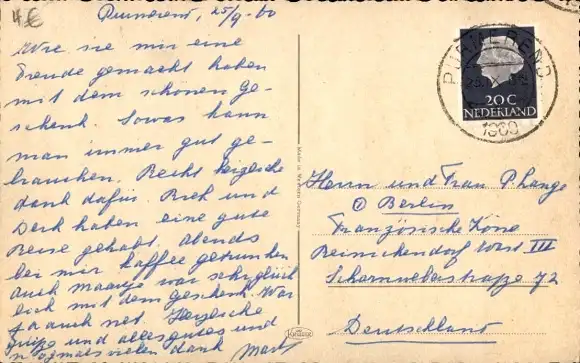 4€
Purmerend, 25/9-60
Wie sie mir eine
Freude gemacht haben
mit dem schönen Ge-
schenk. Sowas kann
man immer gut ge-
brauchen. Recht herzliche
dank dafür. Riek und
Derk haben eine gute
Reise gehabt. Abends
bei mir kaffee getrunken
auch Maatje war sehr glück
lich mit dem Geschenk. War
ja auch net. Herzliche
grüße und alles gutes und
nogmals vielen dank
PURMEREND
1960
20 C
NEDERLAND
Made in Western Germany
Herrn und Frau P. Lange
Berlin
Französische Zone
Reinickendorf West III
Scharnweberstrasze 72
Deutschland